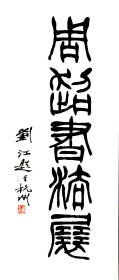 周書法展
劉江題于杭州